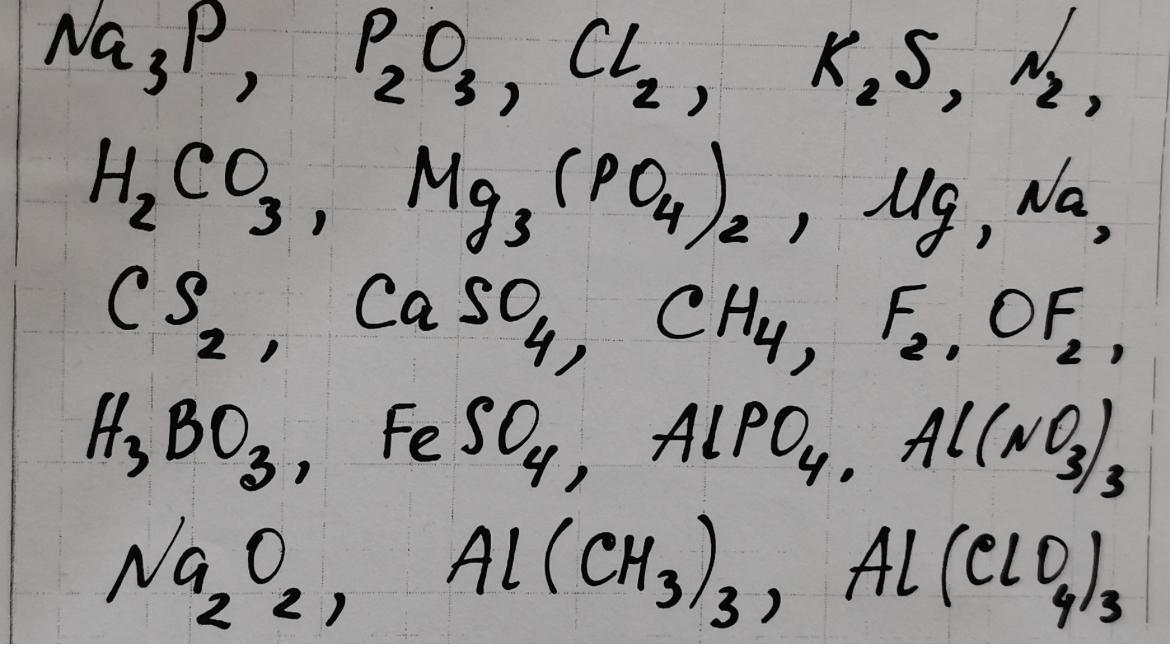 Na₃P, P₂O₃, Cl₂, K₂S, N₂,
H₂CO₃, Mg₃(PO₄)₂, Mg, Na,
CS₂, CaSO₄, CH₄, F₂, OF₂,
H₃BO₃, FeSO₄, AlPO₄, Al(NO₃)₃
Na₂O₂, Al(CH₃)₃, Al(ClO₄)₃